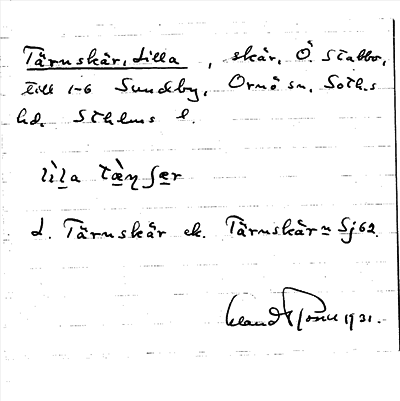 Tärnskär, Lilla, skär, Ö. Stabbo,
till 1-6 Sundby, Ornö sn, Soth.s
hd. Sthlms l.
lìla tæ̀ŋʃær
d. Tärnskär ek. Tärnskär n Sj62.
1931.